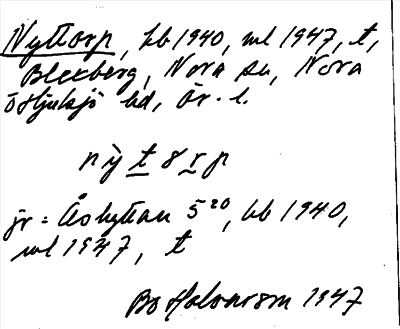 Nyttorp, hb 1940, ml 1947, t,
Blexberg, Nora sn, Nora
o Hjulsjö bd, Ör. l.
n y̆ t 8 r p
jr = Åshyttan 5²⁰, hb 1940,
ml 1947, t
Bo Halvarson 1947